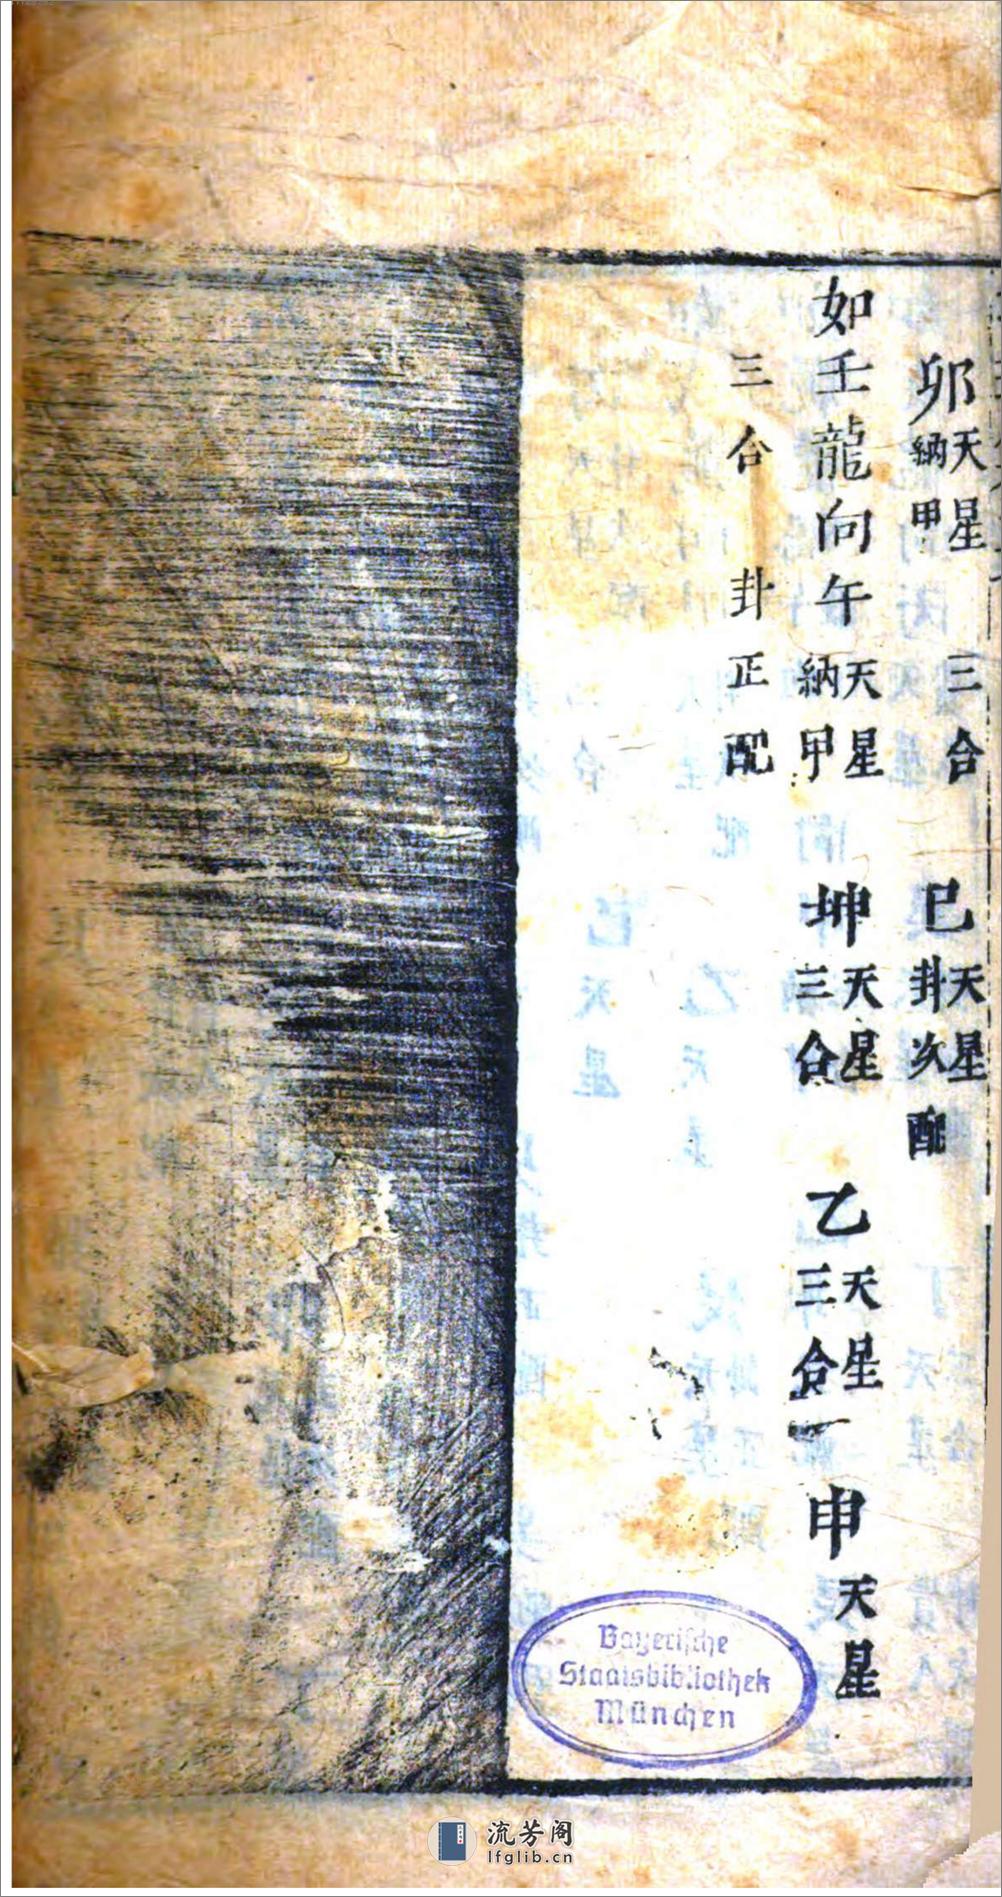 卯天星三合納甲 巳天星卦次配
如壬龍向午天星納甲 坤天星三合 乙天星三合 申天星
三合卦正配
Bayerische
Staatsbibliothek
München
流芳阁
lfglib.cn